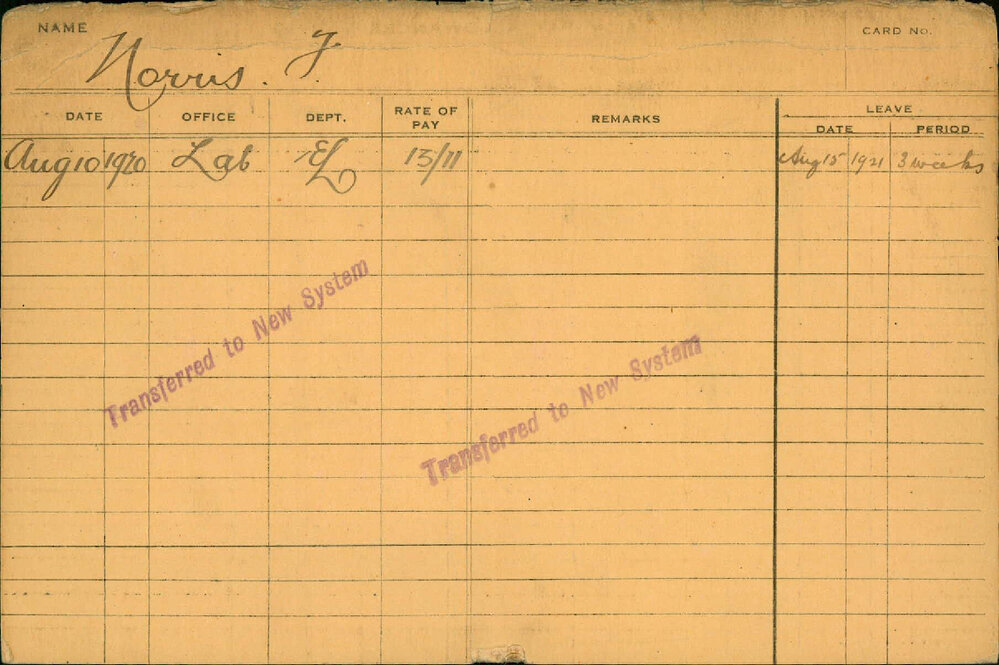 NAME CARD No.
Norris. J.
DATE OFFICE DEPT. RATE OF PAY REMARKS LEAVE
DATE PERIOD
Aug 10 1920 Lab EL 13/11 Aug 15 1921 3 weeks
Transferred to New System
Transferred to New System